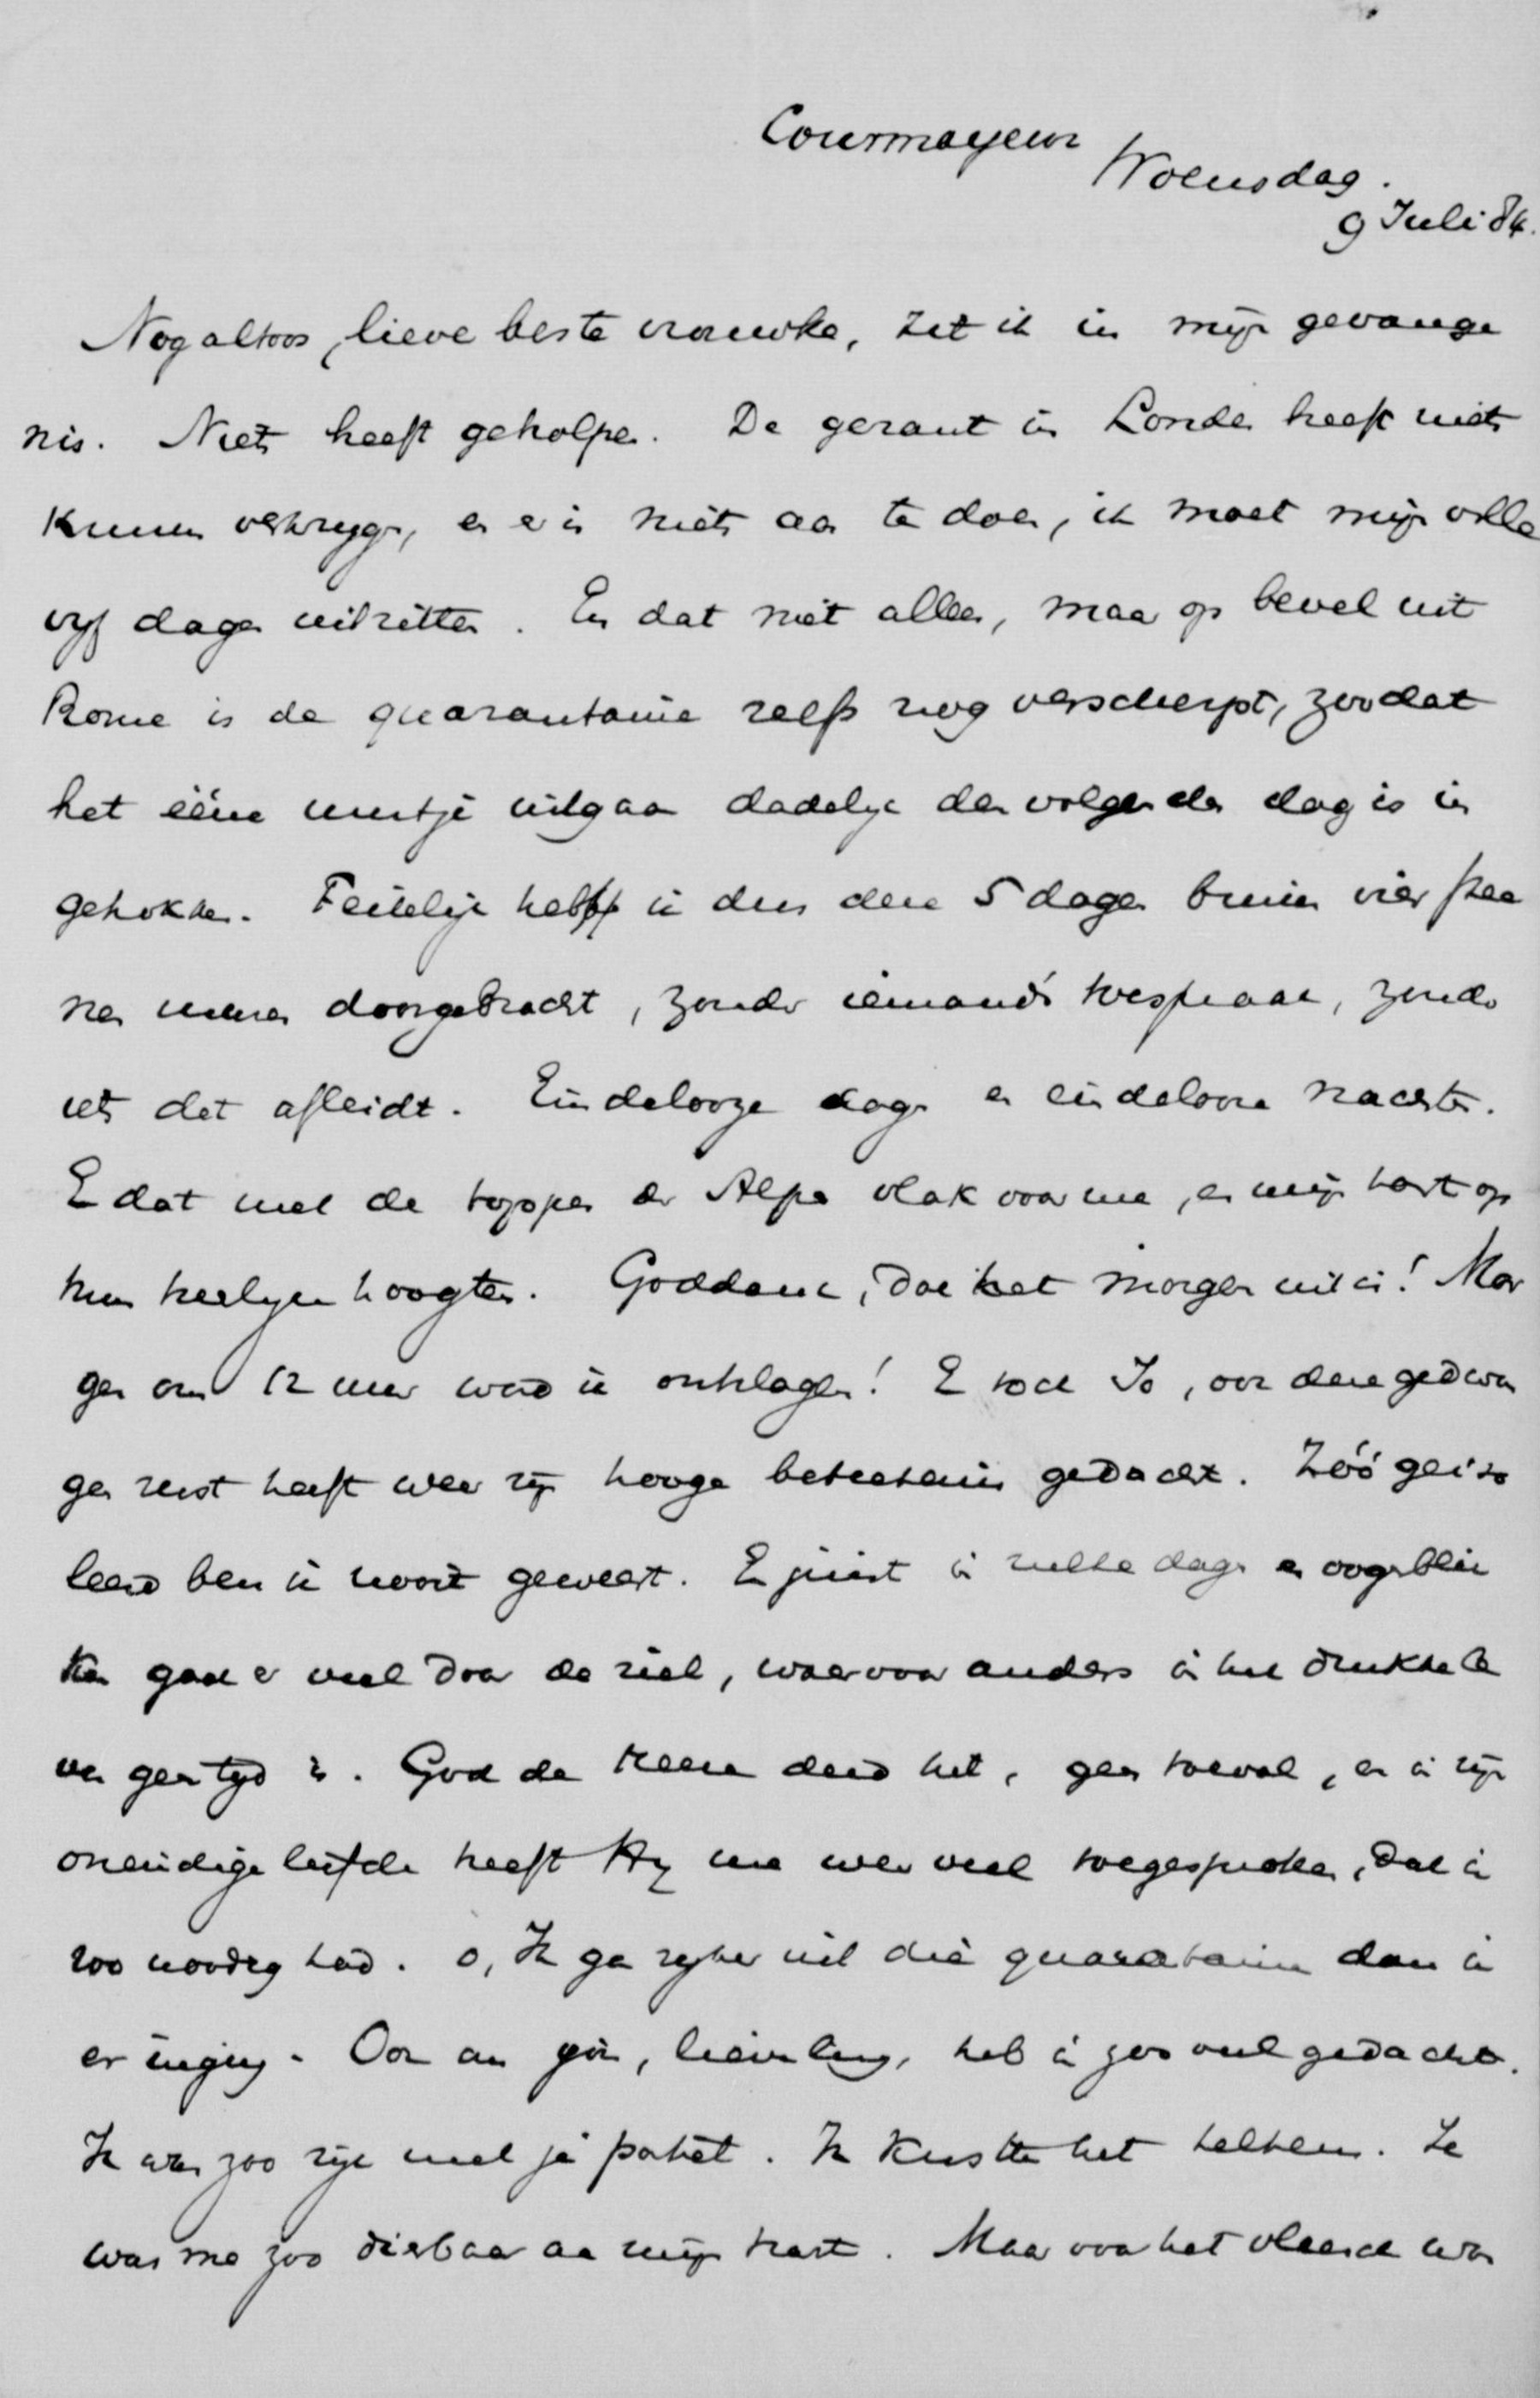 Courmayeur
Woensdag.
9 Juli 84.
Nog altoos, lieve beste vrouwke, zit ik in mijn gevange
nis. Niets heeft geholpen. De gerant in Londen heeft niets
kunnen verkrygen, en er is niets aan te doen, ik moet mijn volle
vyf dagen uitzitten. En dat niet alleen, maar op bevel uit
Rome is de quarantaine zelfs nog verscherpt, zoodat
het ééne uurtje uitgaan dadelyk den volgenden dag is in
getrokken. Feitelijk heb ik dus deze 5 dagen binnen vier
muren doorgebracht, zonder iemand's toespraak, zonder
iets dat afleidt. Eindelooze dagen en eindelooze nachten.
En dat met de toppen der Alpen vlak voor me, en mijn hart op
hun heerlyke hoogten. Goddank, dat het morgen uit is! Mor
gen om 12 uur word ik ontslagen! En toch Jo, ook deze gedwon
gen rust heeft weer zijn hooge beteekenis gedacht. Zóó geïso
leerd ben ik nooit geweest. En juist in zulke dagen en oogenblik
ken gaat er veel door de ziel, waarvoor anders in het drukke le
ven geen tyd is. God de Heere deed het, geen toeval, en in zijn
oneindige liefde heeft Hy me weer veel toegesproken, dat ik
zoo noodig had. o, Ik ga ryker uit die quarantaine dan ik
er inging. Ook aan jou, lieveling, heb ik zoo veel gedacht.
Ik was zoo rijk met je portret. Ik kustte het telkens. Je
was me zoo dierbaar aan mijn hart. Maar voor het vleesch was